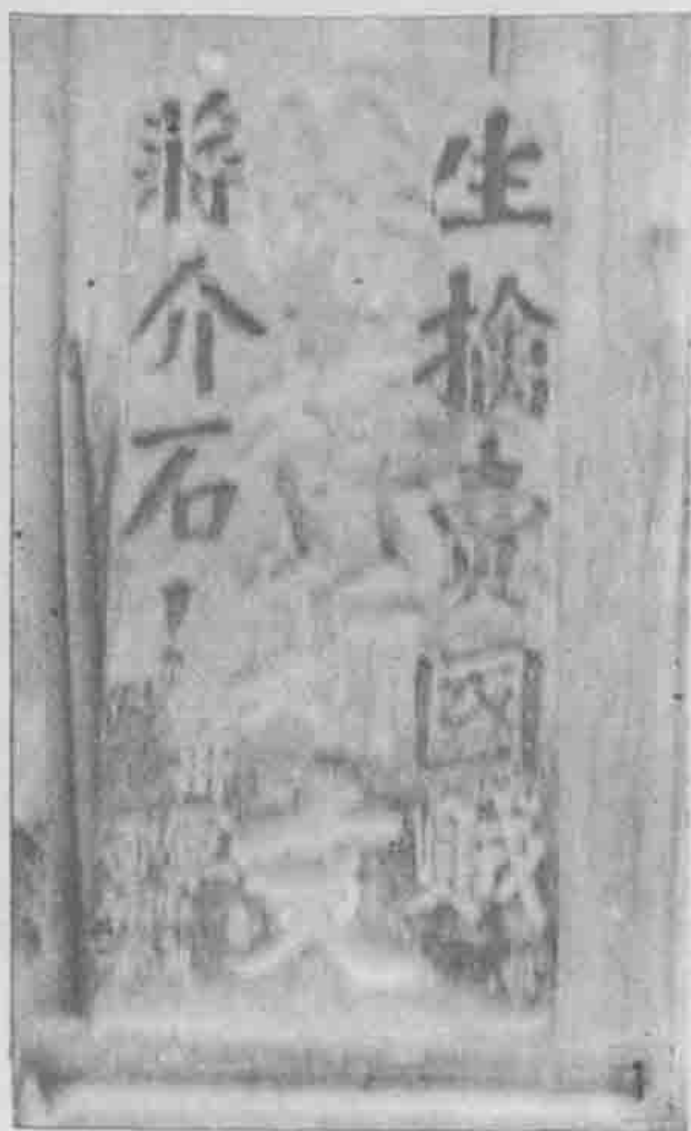 生擒賣國賊
將介石!